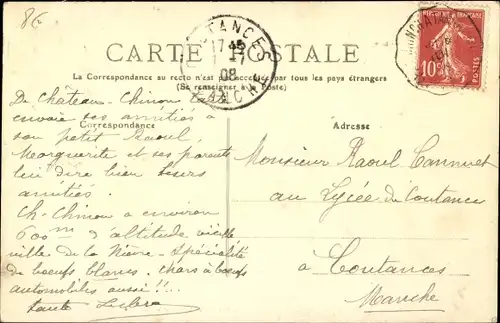 8€
CARTE POSTALE
COUTANCES
17 45
1-7
08
MANCHE
10c
POSTES
La Correspondance au recto n'est pas acceptée par tous les pays étrangers
(Se renseigner à la Poste)
Correspondance
Adresse
De Château-Chinon tante
envoie ses amitiés à
son petit Raoul.
Marguerite et ses parents
lui dire bien
amitiés.
Ch-Chinon a environ
600m d'altitude vieille
ville de la Nièvre - Spécialité
de boeufs blancs. chars à boeufs
automobiles aussi !!..
tante
Monsieur Raoul
au Lycée de Coutances
à Coutances
Manche